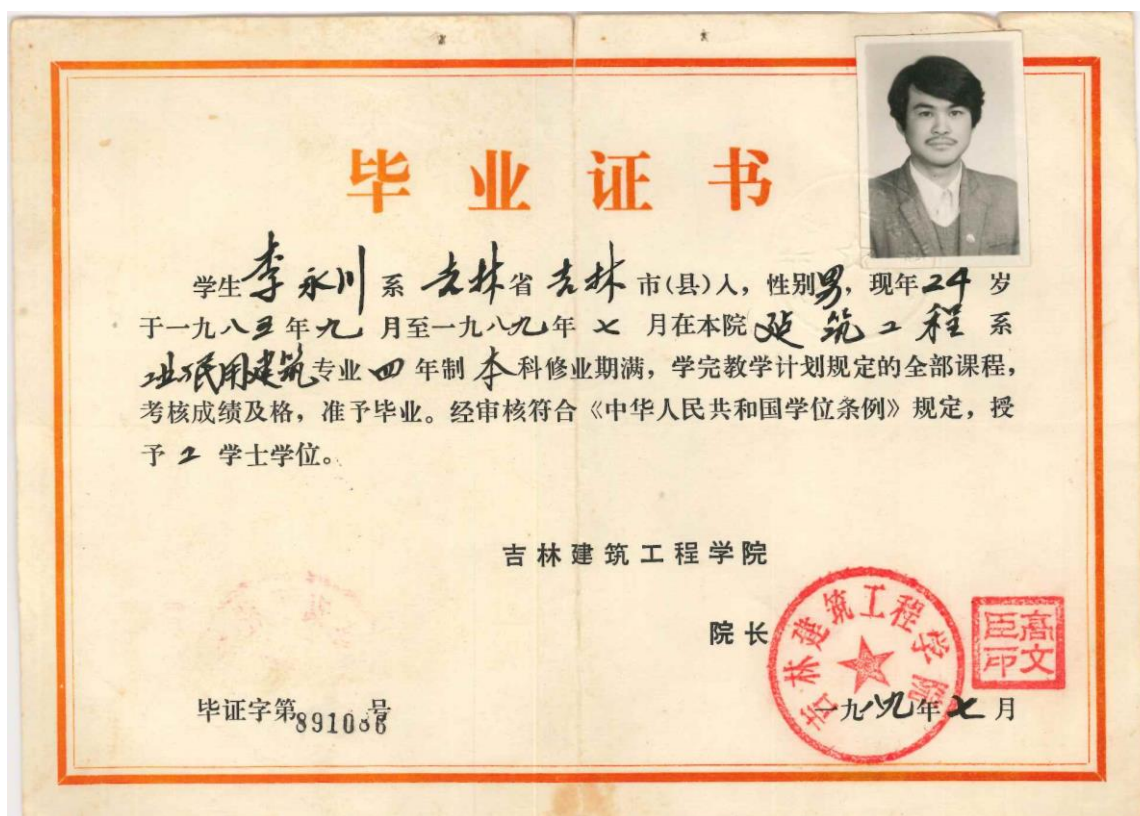 毕业证书
学生李永川系吉林省吉林市(县)人，性别男，现年24岁
于一九八五年九月至一九八九年七月在本院建筑工程系
工业与民用建筑专业四年制本科修业期满，学完教学计划规定的全部课程，
考核成绩及格，准予毕业。经审核符合《中华人民共和国学位条例》规定，授
予工学士学位。
吉林建筑工程学院
院长
吉林建筑工程学院
高文
臣印
毕证字第891086号
一九八九年七月